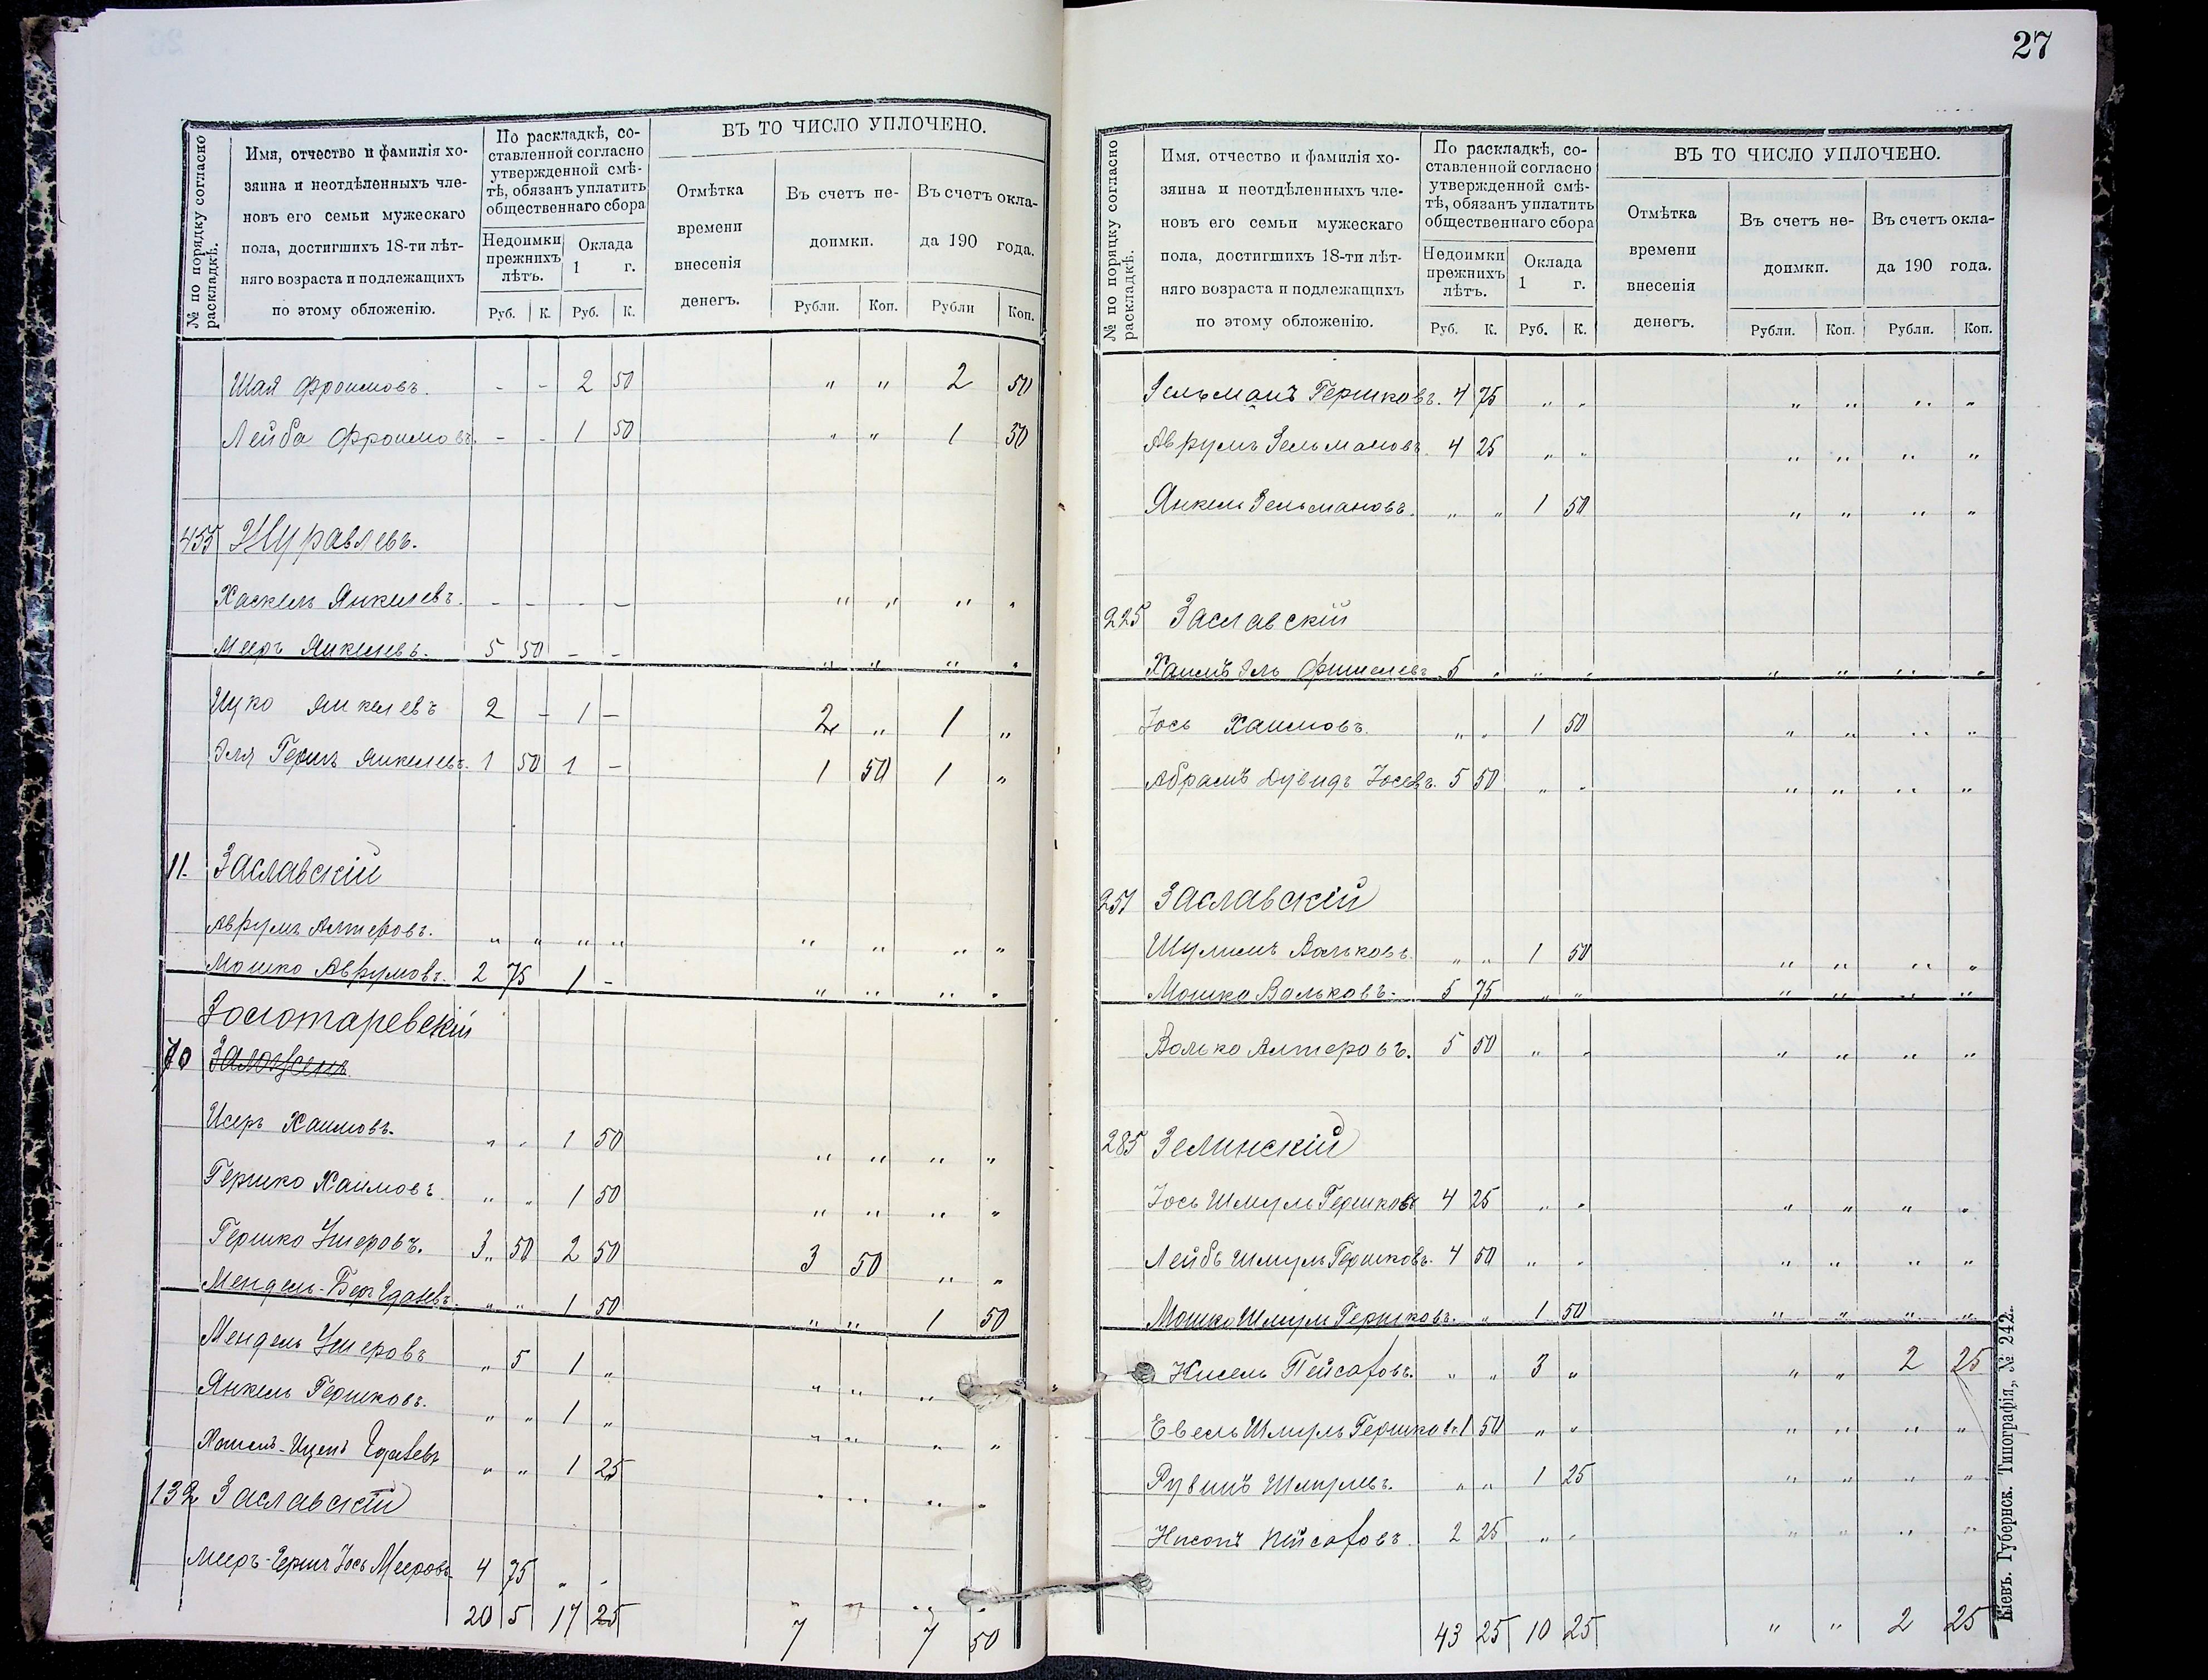 27
№ по порядку согласно раскладкѣ.
Имя, отчество и фамилія хо-
зяина и неотдѣленныхъ чле-
новъ его семьи мужескаго
пола, достигшихъ 18-ти лѣт-
няго возраста и подлежащихъ
по этому обложенію.
По раскладкѣ, со-
ставленной согласно
утвержденной смѣ-
тѣ, обязанъ уплатить
общественнаго сбора
Недоимки прежнихъ лѣтъ.
Оклада 1 г.
Руб. К. Руб. К.
ВЪ ТО ЧИСЛО УПЛОЧЕНО.
Отмѣтка
времени
внесенія
денегъ.
Въ счетъ не-
доимки.
Въ счетъ окла-
да 190 года.
Рубли. Коп. Рубли Коп.
Шая Фроимовъ. - - 2 50 " " 2 50
Лейба Фроимовъ. - - 1 50 " " 1 50
455 Журавлевъ.
Хаскель Янкелевъ. - - - - " " " "
Мееръ Янкелевъ. 5 50 - - " " " "
Ицко Янкелевъ 2 - 1 - 2 " 1 "
Эля Гершъ Янкелевъ. 1 50 1 - 1 50 1 "
11. Заславскій
Аврумъ Алтеровъ. " " " " " " " "
Мошко Аврумовъ. 2 75 1 - " " " "
Золотаревскій
70 Заложень
Исеръ Хаимовъ. " " 1 50 " " " "
Гершко Хаимовъ. " " 1 50 " " " "
Гершко Ушеровъ. 3 " 50 2 50 3 50 " "
Мендель-Беръ " " 1 50 " " 1 50
Мендель Ушеровъ " 5 1 " " " "
Янкель Гершковъ. " " 1 " " " " "
" " 1 25 " " " "
132 Заславскій
Мееръ-Гершъ Іось Мееровъ 4 75 " " " " " "
20 5 17 25 7 " 7 50
№ по порядку согласно раскладкѣ.
Имя, отчество и фамилія хо-
зяина и неотдѣленныхъ чле-
новъ его семьи мужескаго
пола, достигшихъ 18-ти лѣт-
няго возраста и подлежащихъ
по этому обложенію.
По раскладкѣ, со-
ставленной согласно
утвержденной смѣ-
тѣ, обязанъ уплатить
общественнаго сбора
Недоимки прежнихъ лѣтъ.
Оклада 1 г.
Руб. К. Руб. К.
ВЪ ТО ЧИСЛО УПЛОЧЕНО.
Отмѣтка
времени
внесенія
денегъ.
Въ счетъ не-
доимки.
Въ счетъ окла-
да 190 года.
Рубли. Коп. Рубли. Коп.
Зельманъ Гершковъ. 4 75 " " " " " "
Аврумъ Зельмановъ. 4 25 " " " " " "
Янкель Зельмановъ. " " 1 50 " " " "
225 Заславскій
Хаимъ Эль Фишелевъ. 5 " " " " " " "
Іось Хаимовъ. " " 1 50 " " " "
Абрамъ Дувидъ Іосевъ. 5 50 " " " " " "
251 Заславскій
Шулимъ Вольковъ. " " 1 50 " " " "
Мошко Вольковъ. 5 75 " " " " " "
Волько Алтеровъ. 5 50 " " " " " "
285 Зелинскій
Іось Шмуль Гершковъ 4 25 " " " " " "
Лейбъ Шмуль Гершковъ. 4 50 " " " " " "
Мошко Шмуль Гершковъ. " 1 50 " " " "
Кисель Пейсаховъ. " " 3 " " " 2 25
Евель Шмуль Гершковъ. 1 50 " " " " " "
Рувинъ Шмулевъ. " " 1 25 " " " "
Нисонъ Пейсаховъ. 2 25 " " " " " "
43 25 10 25 " " 2 25
Кіевъ. Губернск. Типографія„ № 242.